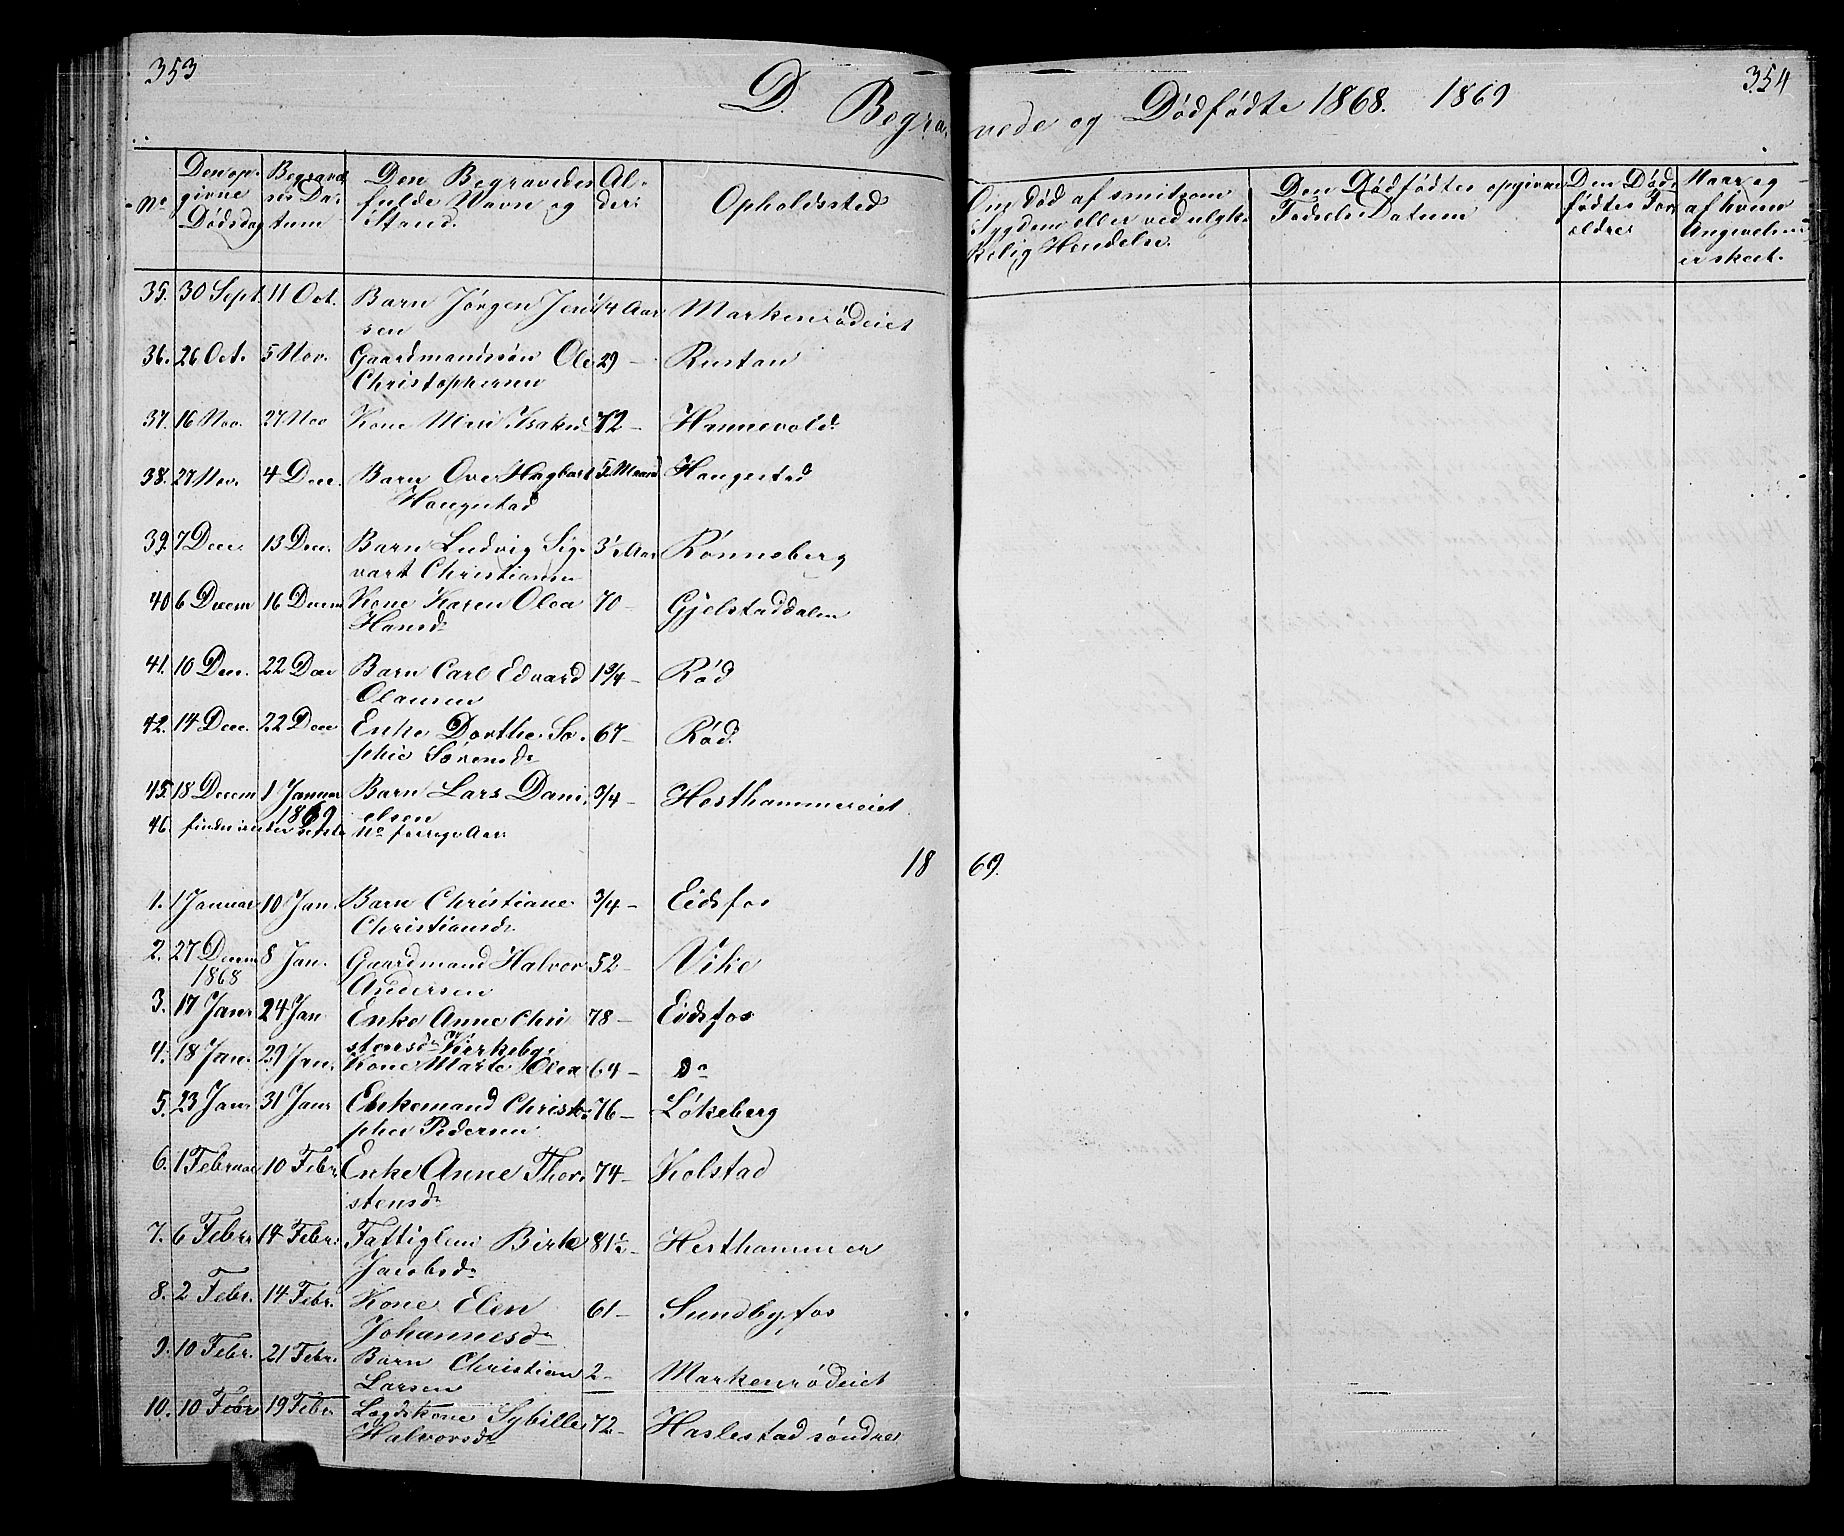 353
354
D. Begravede og Dødfødte 1868. 1869
No | Den opgivne Dødsdag | Begravelses Datum | Den Begravedes fulde Navn og Stand. | Alder | Opholdssted | Om Død af smitsom Sygdom eller ved ulykkelig Hendelse. | Den Dødfødtes opgivne Fødsels Datum | Den Dødfødtes Forældre | Naar og af hvem Angivelsen er skeet.
35. 30 Sept. 11 Oct. Barn Jørgen Jen 1/4 Aar Markenrødeiet
sen
36. 26 Oct. 5 Nov. Gaardmandssøn Ole 29 — Rustan
Christophersen
37. 16 Nov. 27 Nov Kone Isaksd. 72 — Hannevold
38. 27 Nov. 4 Dec. Barn Ove Hagbart 5 Hangestad
Hangestad
39. 7 Dec. 13 Dec. Barn Ludvig Sig- 3½ Aar Rønneberg
vart Christiansen
40 6 Decem 16 Decem Kone Karen Olea 70 — Gjelstaddalen
Hansdr
41. 10 Dec. 22 Dec Barn Carl Edvard 1¾ — Rød
Olausen
42. 14 Dec. 22 Dec Enke Dorthe So- 67 — Rød.
phie Sørensdr
45. 18 Decem 1 Januar Barn Lars Dani 3/4 — Hesthammereiet
1869 elsen
46. findes under sidste No forrige Aar
1869.
1. 1 Januar 10 Jan. Barn Christiane 3/4 — Eidsfos
Christiansdr
2. 27 Decem 8 Jan. Gaardmand Halvor 52 — Vike
1868 Andersen
3. 17 Janr 24 Jan Enke Anne Chri 78 — Eidsfos
stensdr Kirkeby
4. 18 Jan. 29 Jan. Kone Marte Olea 64 — do
5. 23 Janr 31 Janr Enkemand Christo 76 — Løkeberg
pher Pedersen
6. 1 Februar 10 Febr. Enke Anne Thor 74 — Kolstad
stensdr
7. 6 Febr 14 Febr. Fattiglem Birte 81½ — Hesthammer
Jacobsdr
8. 2 Febr. 14 Febr. Kone Elen 61 — Sundbyfos
Johannesdr
9. 10 Febr. 21 Febr. Barn Christian 2 — Markenrødeiet
Larsen
10. 10 Febr 19 Febr Lægdskone Sybille 72 — Haslestad søndre
Halvorsdr